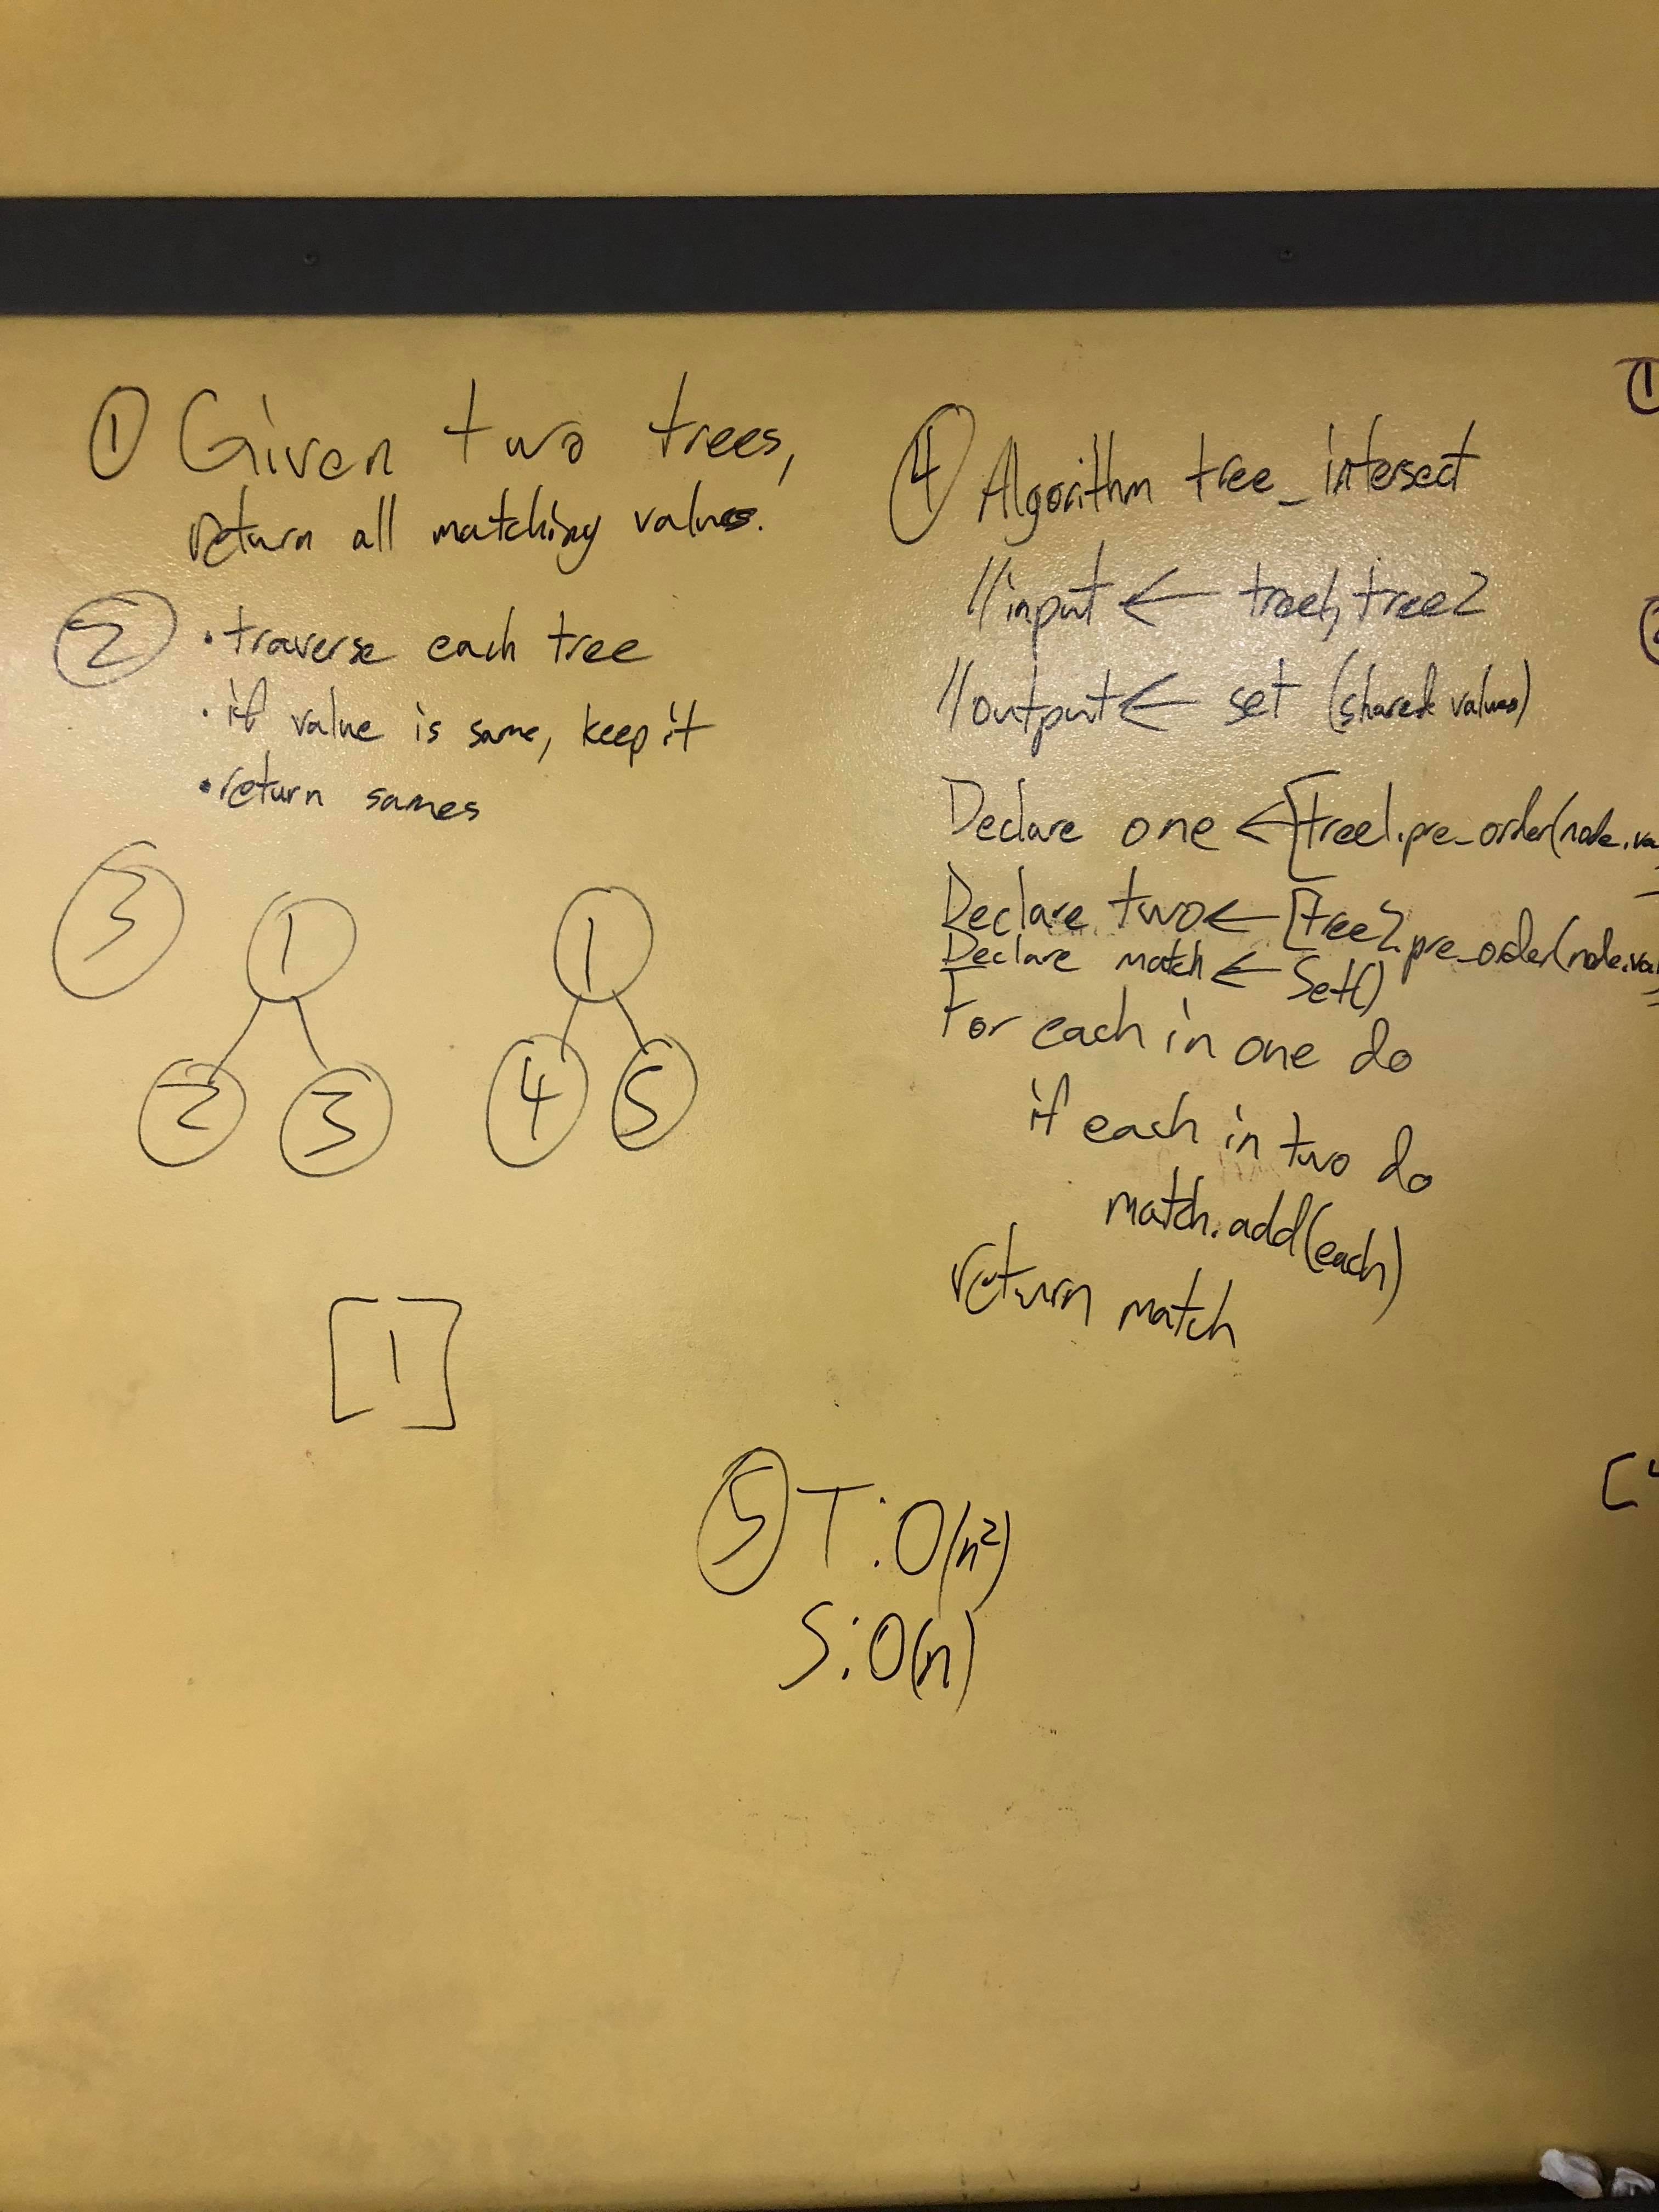 ① Given two trees,
return all matching values.
② • traverse each tree
• if value is same, keep it
• return sames
③
1
2 3
1
4 5
[1]
④ Algorithm tree_intersect
//input ← tree1, tree2
//output ← set (shared values)
Declare one ← [tree1.pre_order(node.va
Declare two ← [tree2.pre_order(node.va
Declare match ← Set()
For each in one do
if each in two do
match.add(each)
return match
⑤ T: O(n²)
S: O(n)
①